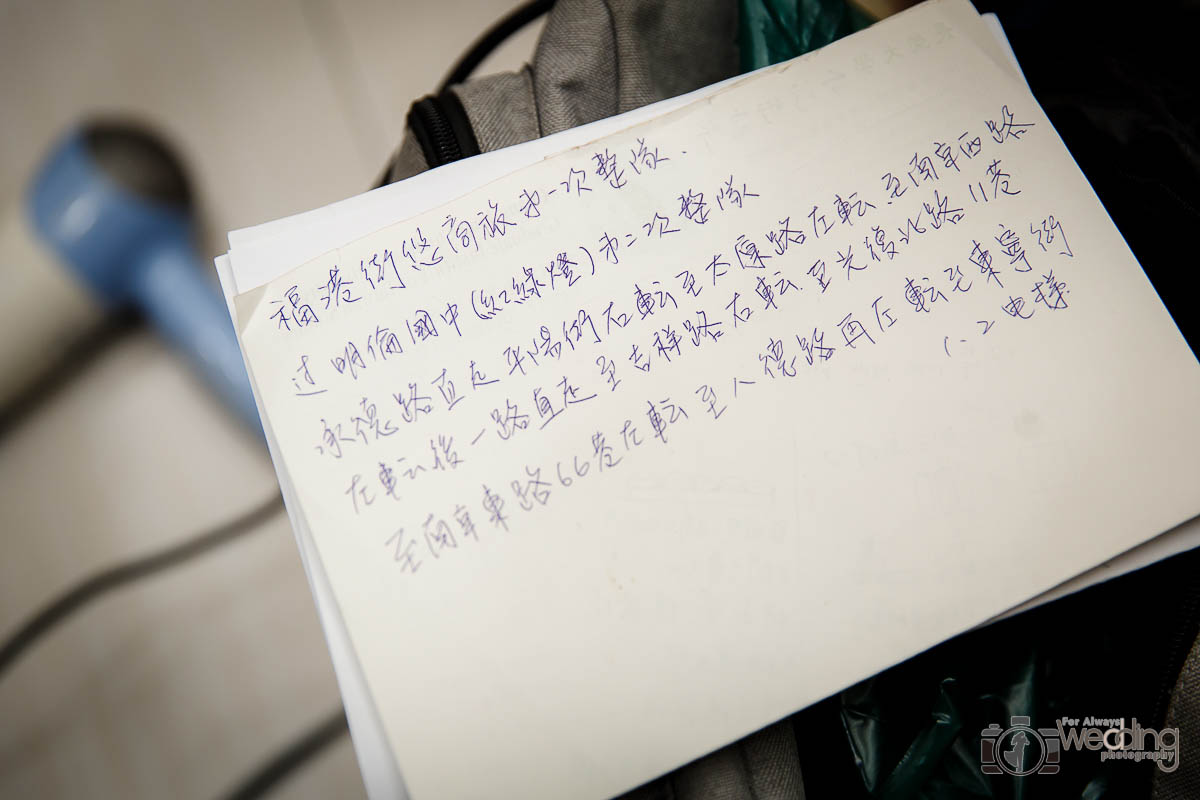 福港街悠商旅第一次整隊.
过明倫國中(紅綠燈)第二次整隊
承德路直走平陽街右転至太原路左転.至南京西路
左転後一路直走至吉祥路右転.至光復北路11巷
至南京東路66巷左転至八德路再左転至東寧街
1.2电梯
For Always
Wedding
photography